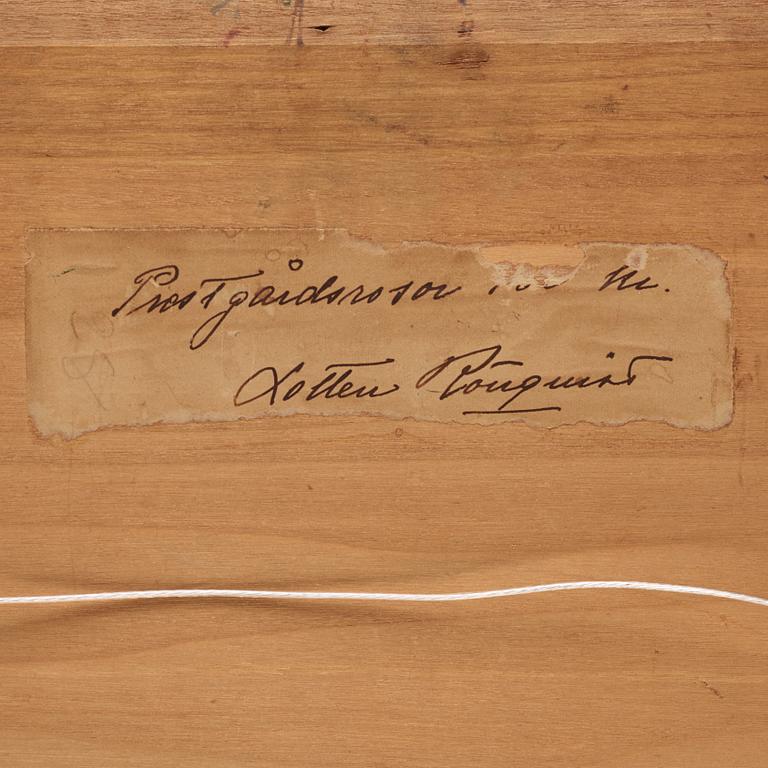 Prostgårdsrosor kr.
Lotten Rönquist